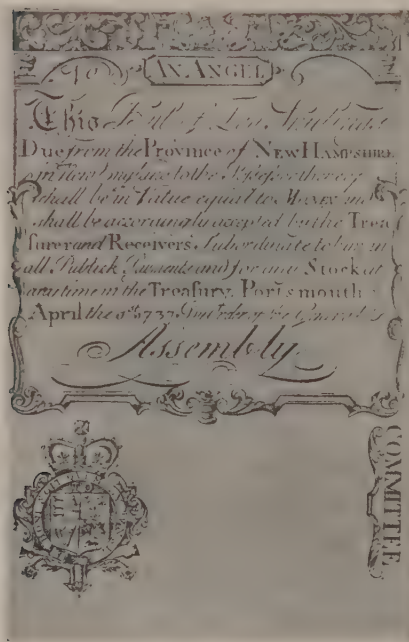 AN ANGEL
This Bill of Ten Shillings
Due from the Province of NEW HAMPSHIRE
to the Possessor thereof
shall be in Value equal to MONEY and
shall be accordingly accepted by the Trea
surer and Receivers Subordinate to him in
all Publick Payments and for any Stock at
any time in the Treasury. Portsmouth
April the 1737 By Order of the General
Assembly
COMMITTEE